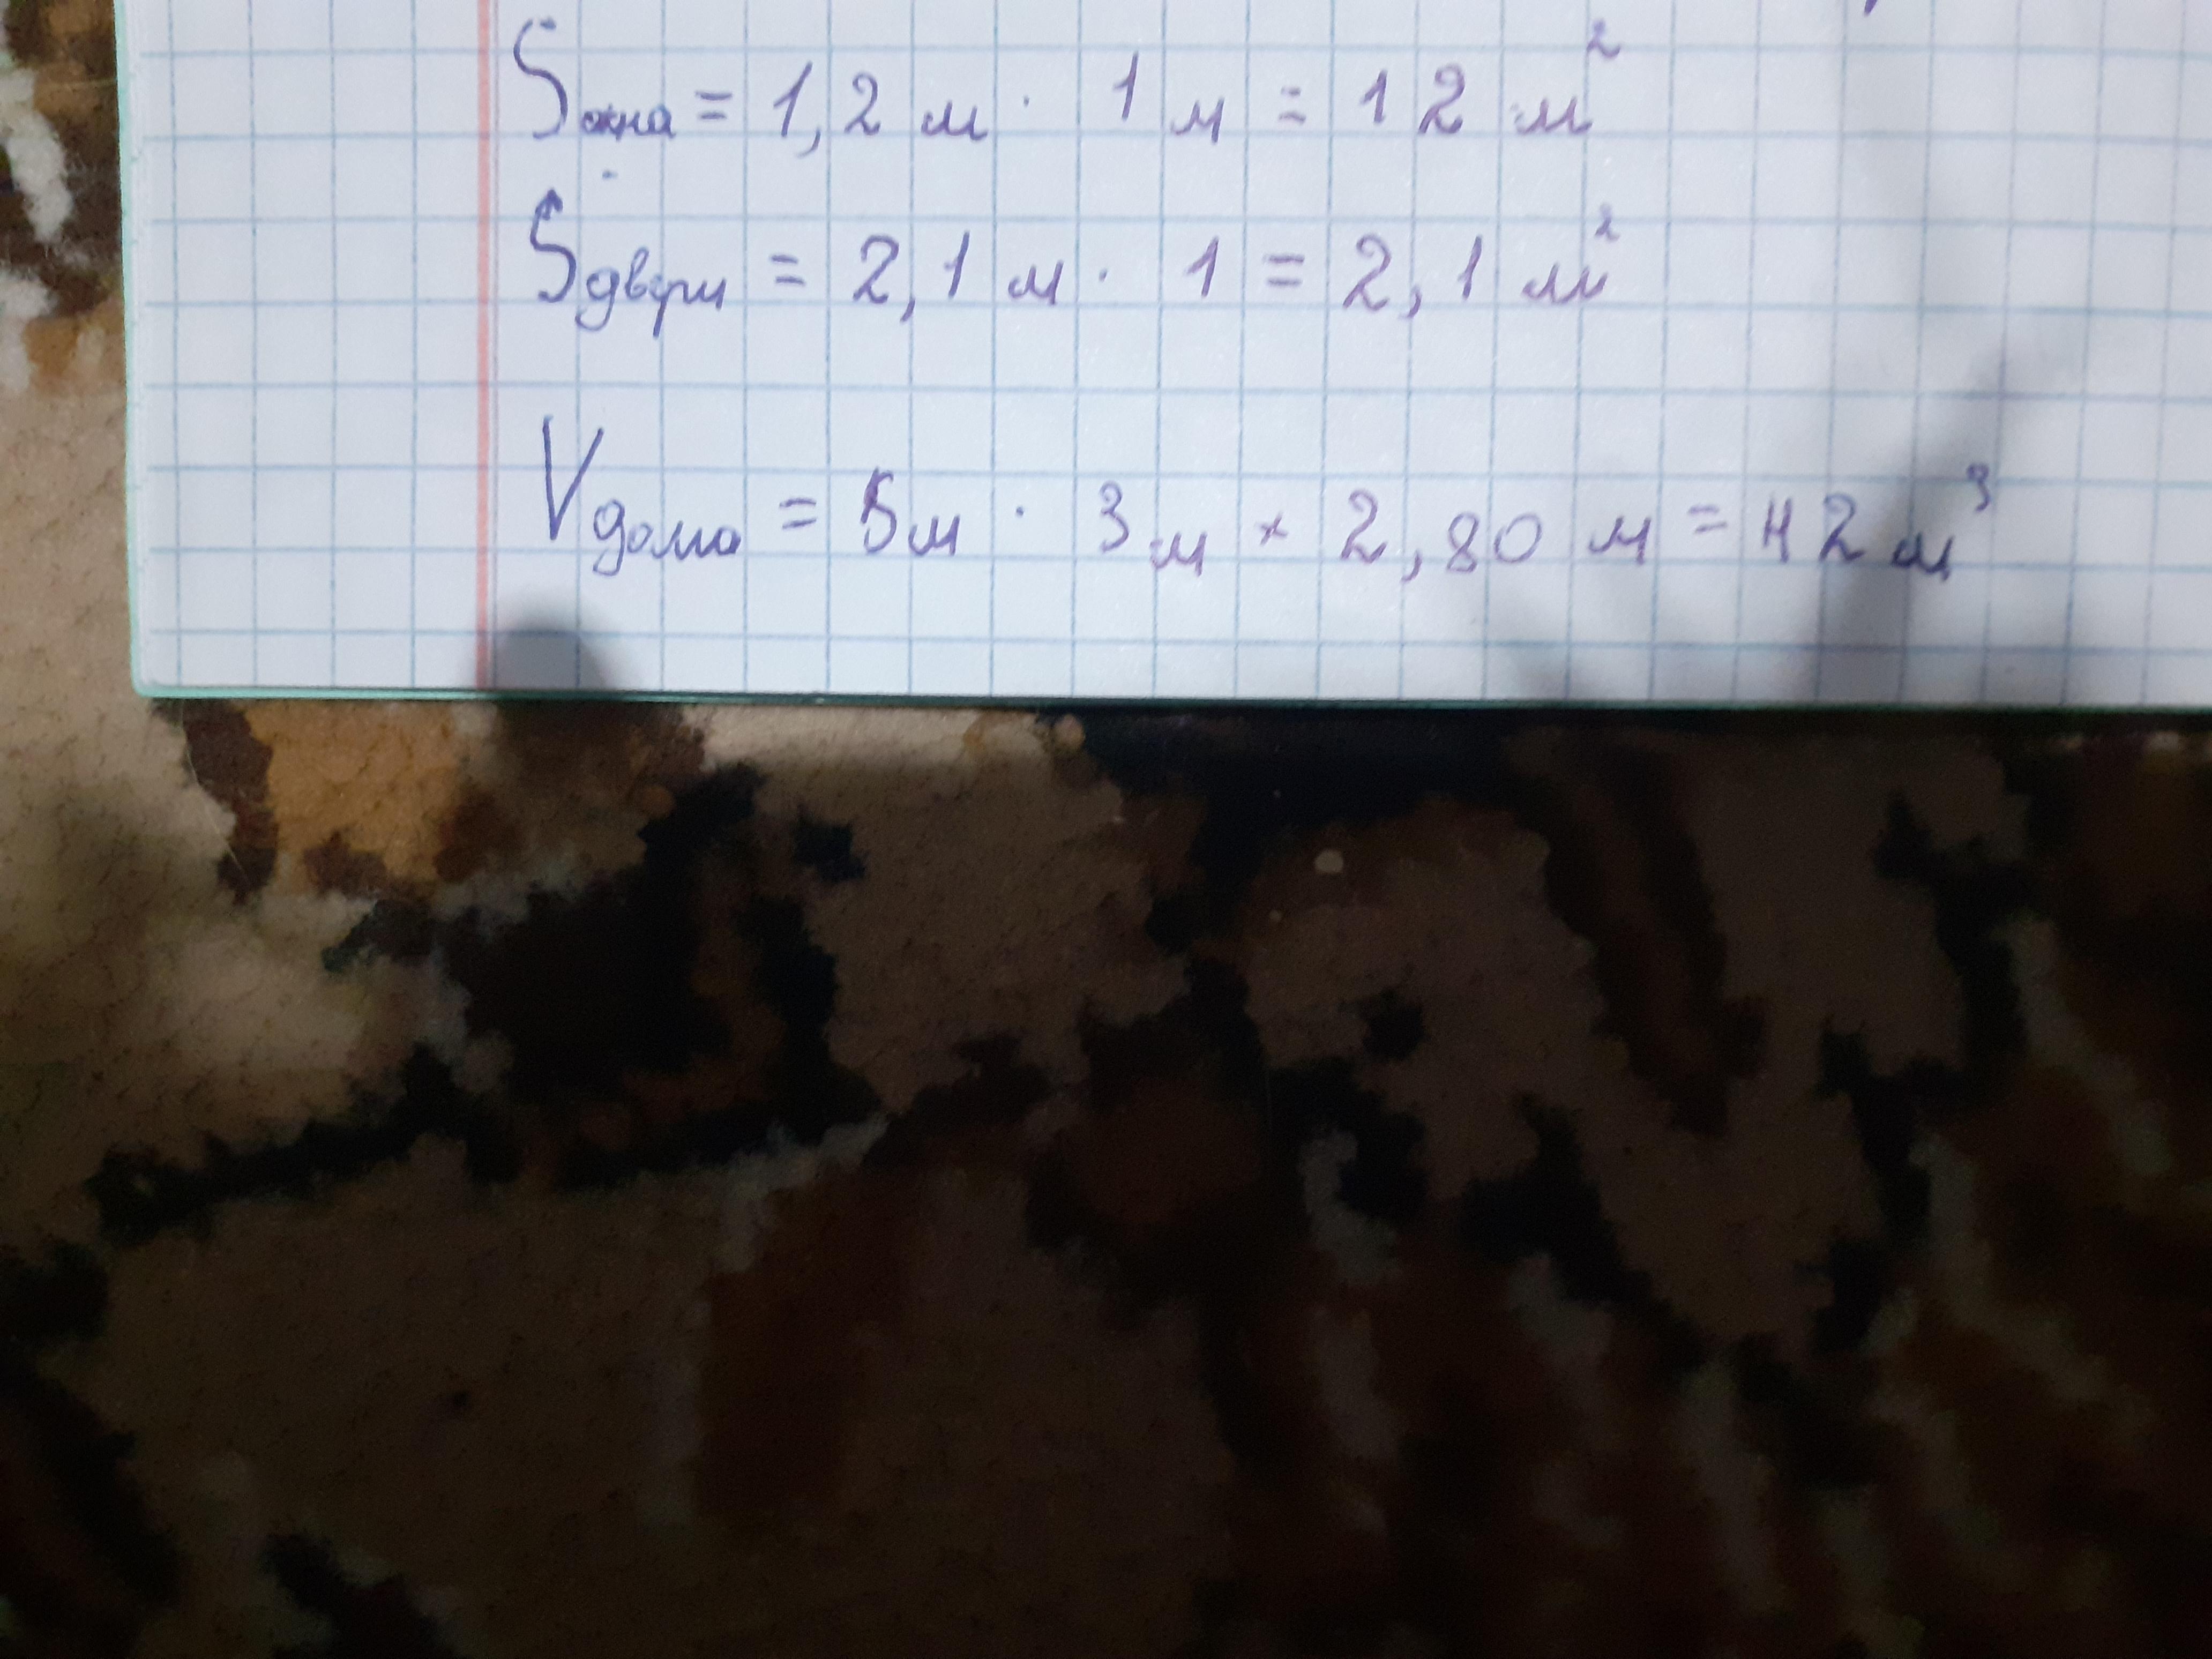 Sокна = 1,2 м · 1 м = 12 м²
Sдвери = 2,1 м · 1 = 2,1 м²
Vдома = 5м · 3 м × 2,80 м = 42 м³